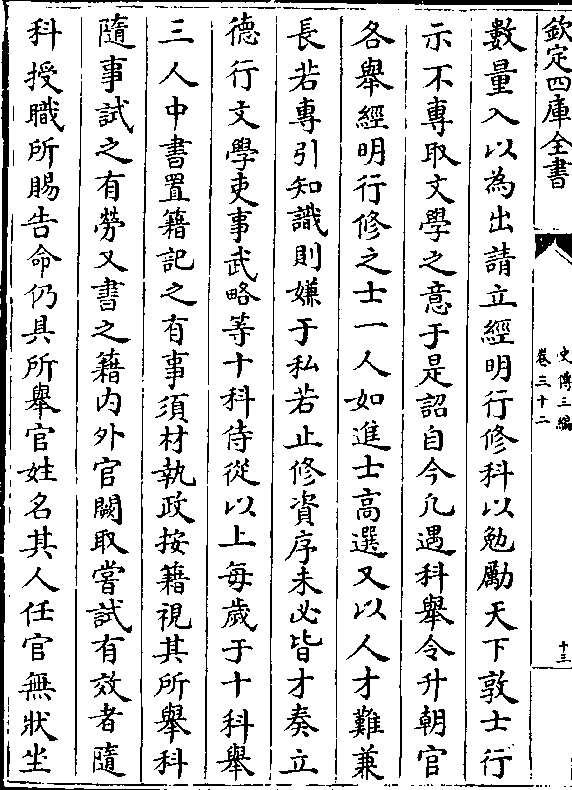 欽定四庫全書
史傳三編
卷三十二
十三
數量入以為出請立經明行修科以勉勵天下敦士行
示不專取文學之意于是詔自今凡遇科舉令升朝官
各舉經明行修之士一人如進士高選又以人才難兼
長若專引知識則嫌于私若止修資序未必皆才奏立
德行文學吏事武略等十科侍從以上每歲于十科舉
三人中書置籍記之有事須材執政按籍視其所舉科
隨事試之有勞又書之籍內外官闕取嘗試有效者隨
科授職所賜告命仍具所舉官姓名其人任官無狀坐